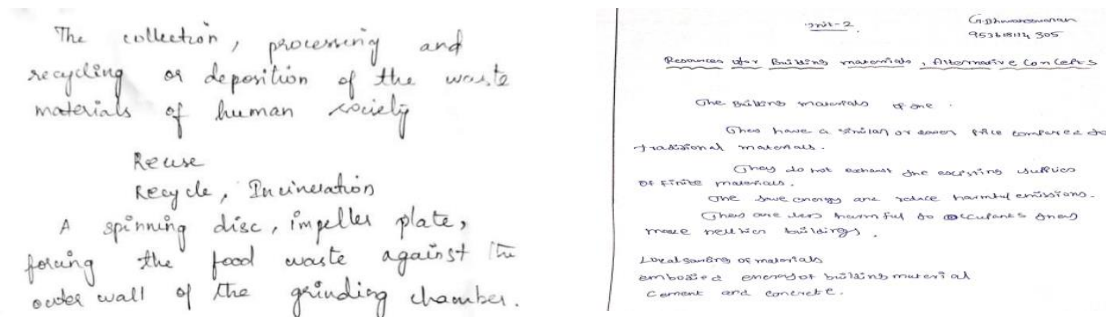 The collection, processing and
recycling or deposition of the waste
materials of human society
Reuse
Recycle, Incineration
A spinning disc, impeller plate,
forcing the food waste against the
outer wall of the grinding chamber.
Unit-2
953618114305
Resources for Building materials, Alternative Concepts
The Building materials
They have a similar or lower compared to
traditional materials.
They do not exhaust the existing supplies
of finite materials.
save energy and reduce harmful emissions.
They are less harmful to occupants
buildings.
Local of materials
embodied energy of building material
Cement and concrete.